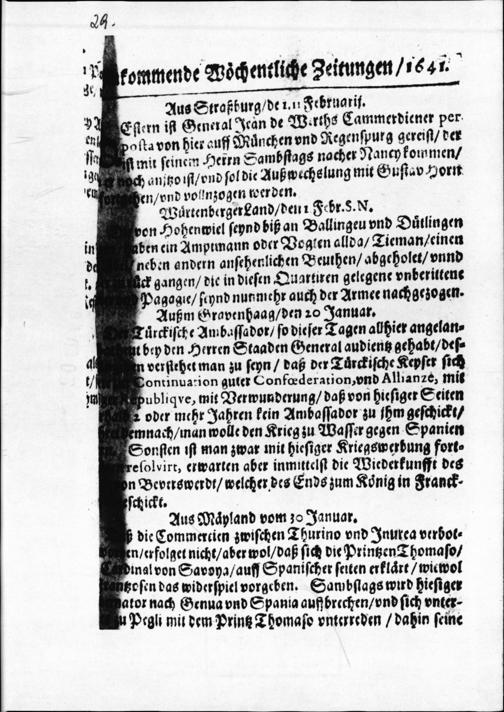 29.
kommende Wöchentliche Zeitungen/1641.
Aus Straßburg/de 1.11 Februarij.
Estern ist General Jean de Werths Cammerdiener per
posta von hier auff München vnd Regenspurg gereist/der
ist mit seinem Herrn Sambstags nacher Nancy kommen/
noch anjtzo ist/vnd sol die Außwechslung mit Gustav Horn
/vnd vollnzogen werden.
WürtenbergerLand/den 1 Febr.S.N.
von Hohenwiel seynd biß an Ballingen vnd Dütlingen
haben ein Amptmann oder Vogten allda/Tieman/einen
neben andern ansehenlichen Beuthen/abgeholet/vnnd
gangen/die in diesen Quartiren gelegene vnberittene
Pagagie/seynd nunmehr auch der Armee nachgezogen.
Außm Gravenhaag/den 20 Januar.
Der Türckische Ambassador/so dieser Tagen allhier angelan-
bey den Herren Staaden General audientz gehabt/des-
verstehet man zu seyn/daß der Türckische Keyser sich
Continuation guter Confœderation,vnd Allianze, mit
Republiqve, mit Verwunderung/daß von hiesiger Seiten
2 oder mehr Jahren kein Ambassador zu ihm geschickt/
demnach/man wolle den Krieg zu Wasser gegen Spanien
Sonsten ist man zwar mit hiesiger Kriegswerbung fort-
resolvirt, erwarten aber inmittelst die Wiederkunfft des
von Beverswerdt/welcher des Ends zum König in Franck-
geschickt.
Aus Mäyland vom 30 Januar.
die Commercien zwischen Thurino vnd Inurea verbot-
/erfolget nicht/aber wol/daß sich die Printzen Thomaso/
Cardinal von Savoya/auff Spanischer seiten erklärt/wiewol
Frantzosen das widerspiel vorgeben. Sambstags wird hiesiger
nach Genua vnd Spania auffbrechen/vnd sich vnter-
zu Pegli mit dem Printz Thomaso vnterreden/dahin seine